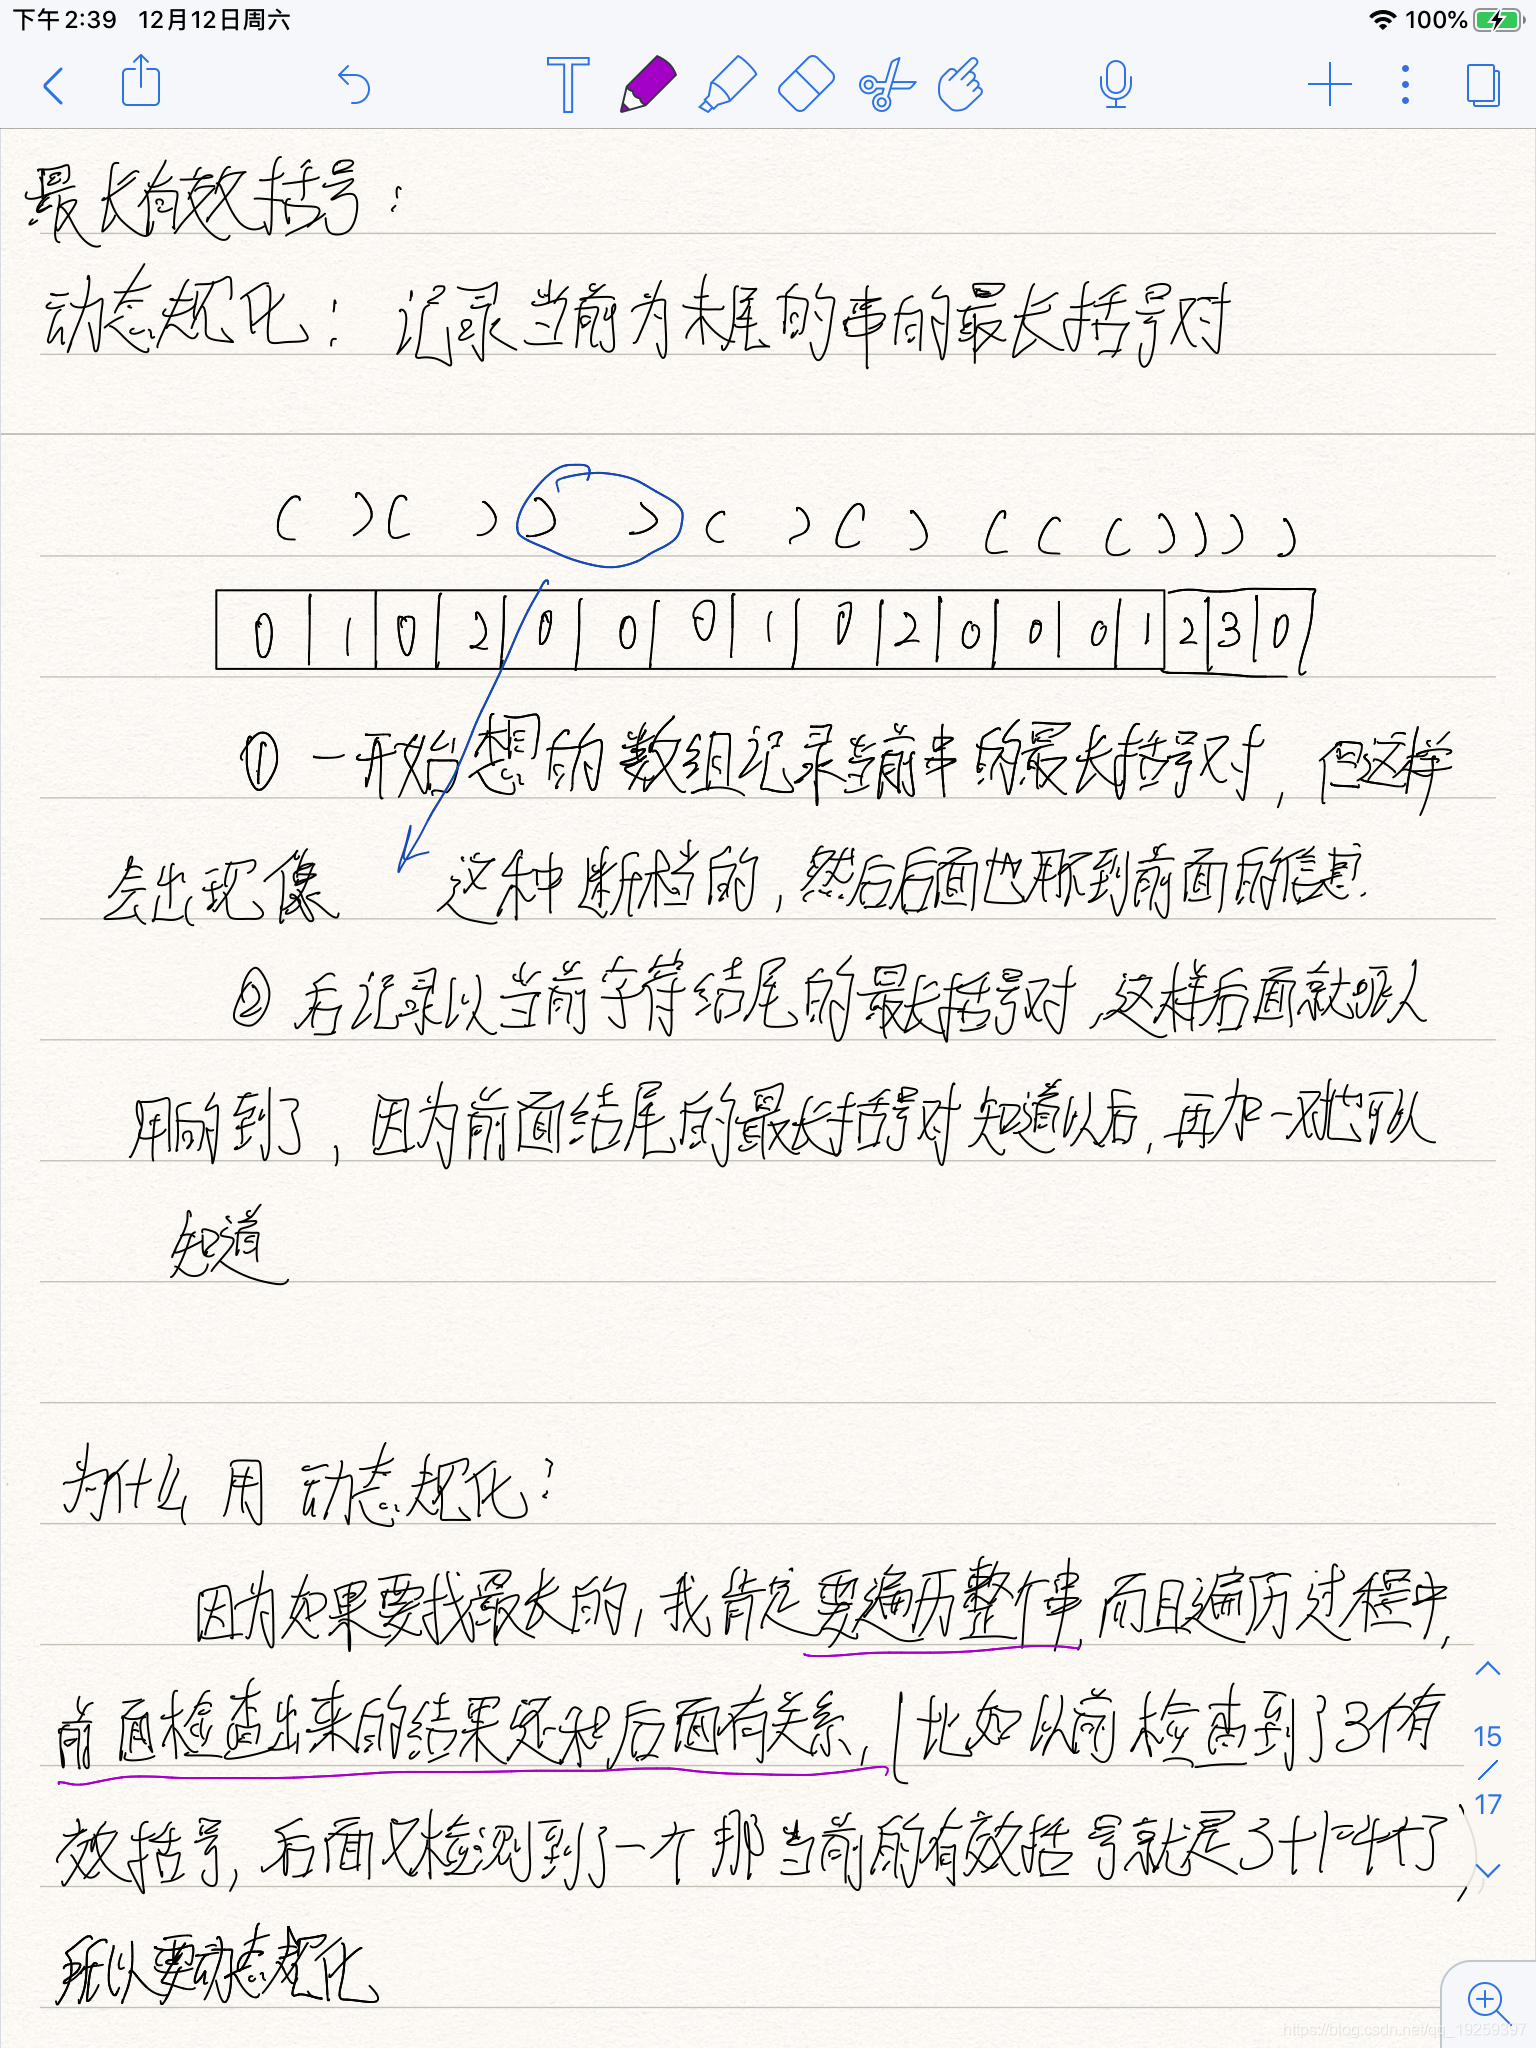 下午2:39 12月12日周六
100%
最长有效括号：
动态规化：记录当前为末尾的串的最长括号对
( ) ( ) ) ) ( ) ( ) ( ( ( ) ) ) )
0 1 0 2 0 0 0 1 0 2 0 0 0 1 2 3 0
① 一开始想的数组记录当前串的最长括号对，但这样
会出现像 这种断档的，然后后面也用不到前面的信息.
② 后记录以当前字符结尾的最长括号对，这样后面就可以
用的到了，因为前面结尾的最长括号对知道以后，再加一对也可以
知道
为什么用动态规化？
因为如果要找最长的，我肯定要遍历整个串，而且遍历过程中，
前面检查出来的结果还和后面有关系，(比如以前检查到了3个有
效括号，后面又检测到了一个那当前的有效括号就是3+1=4个了)，
所以要动态规化
15
/
17
https://blog.csdn.net/qq_19259397